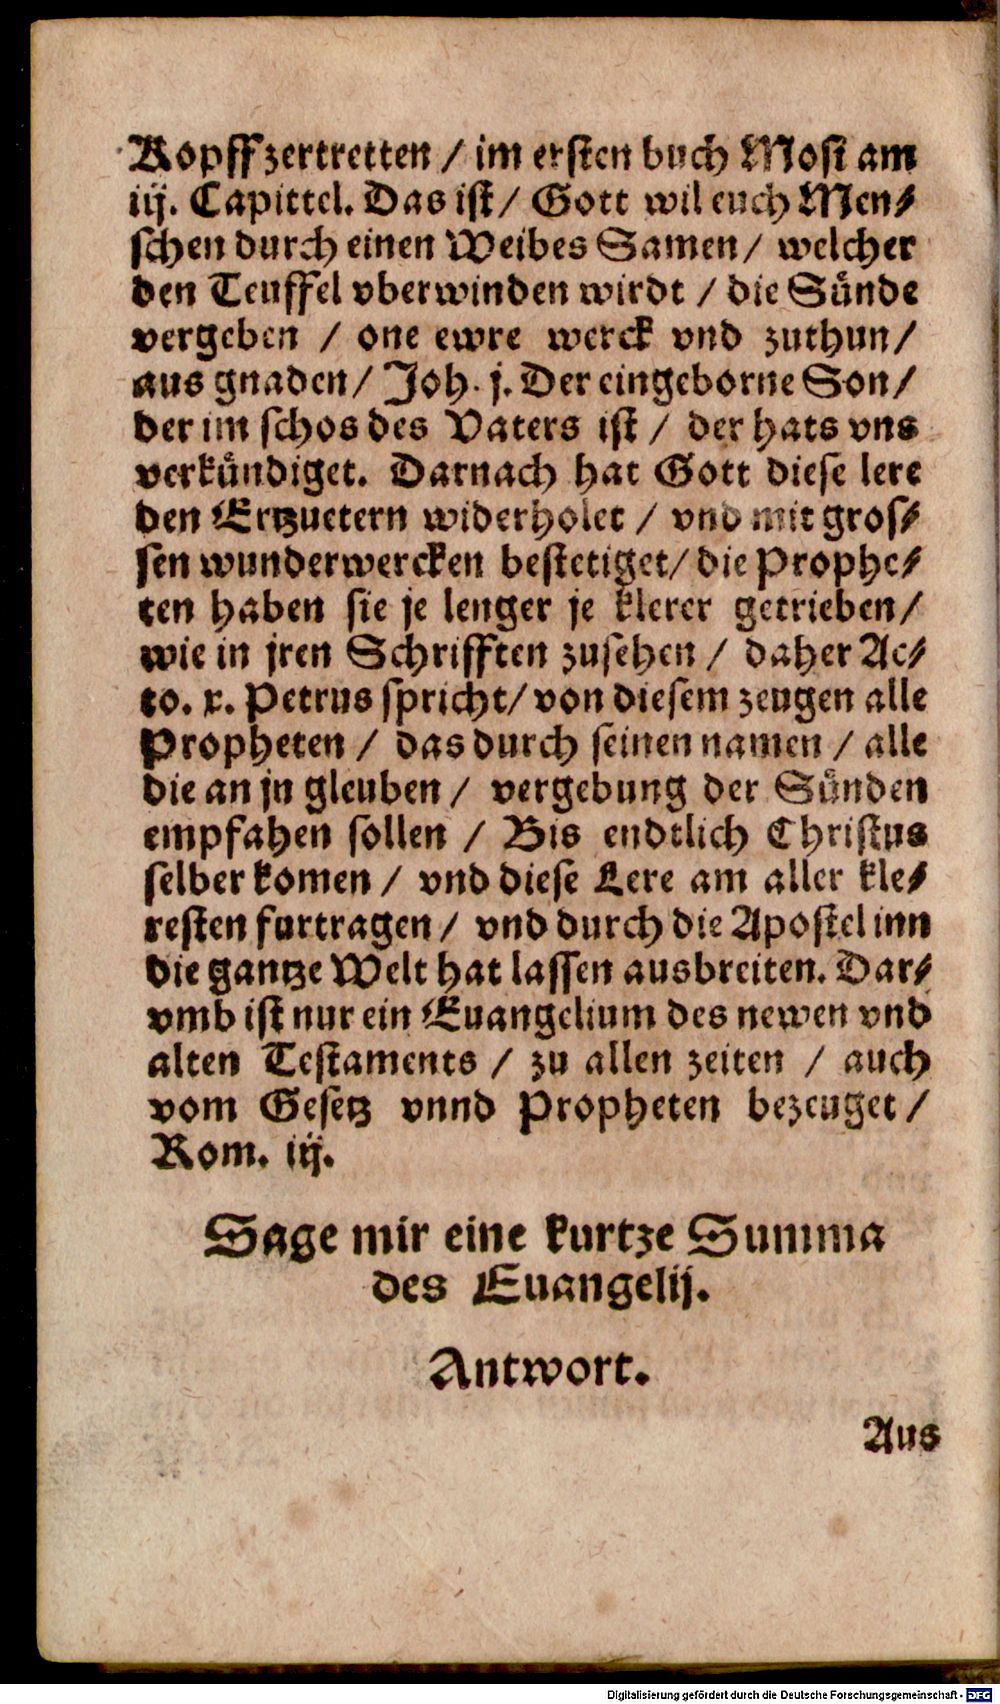 Kopff zertretten / im ersten buch Mosi am
iij. Capittel. Das ist / Gott wil euch Men⸗
schen durch einen Weibes Samen / welcher
den Teuffel vberwinden wirdt / die Sünde
vergeben / one ewre werck vnd zuthun /
aus gnaden / Joh. j. Der eingeborne Son /
der im schos des Vaters ist / der hats vns
verkündiget. Darnach hat Gott diese lere
den Ertzuetern widerholet / vnd mit gros⸗
sen wunderwercken bestetiget / die Prophe⸗
ten haben sie je lenger je klerer getrieben /
wie in jren Schrifften zusehen / daher Ac⸗
to. x. Petrus spricht / von diesem zeugen alle
Propheten / das durch seinen namen / alle
die an jn gleuben / vergebung der Sünden
empfahen sollen / Bis endtlich Christus
selber komen / vnd diese Lere am aller kle⸗
resten furtragen / vnd durch die Apostel inn
die gantze Welt hat lassen ausbreiten. Dar⸗
vmb ist nur ein Euangelium des newen vnd
alten Testaments / zu allen zeiten / auch
vom Gesetz vnnd Propheten bezeuget /
Rom. iij.
Sage mir eine kurtze Summa
des Euangelij.
Antwort.
Aus
Digitalisierung gefördert durch die Deutsche Forschungsgemeinschaft - DFG